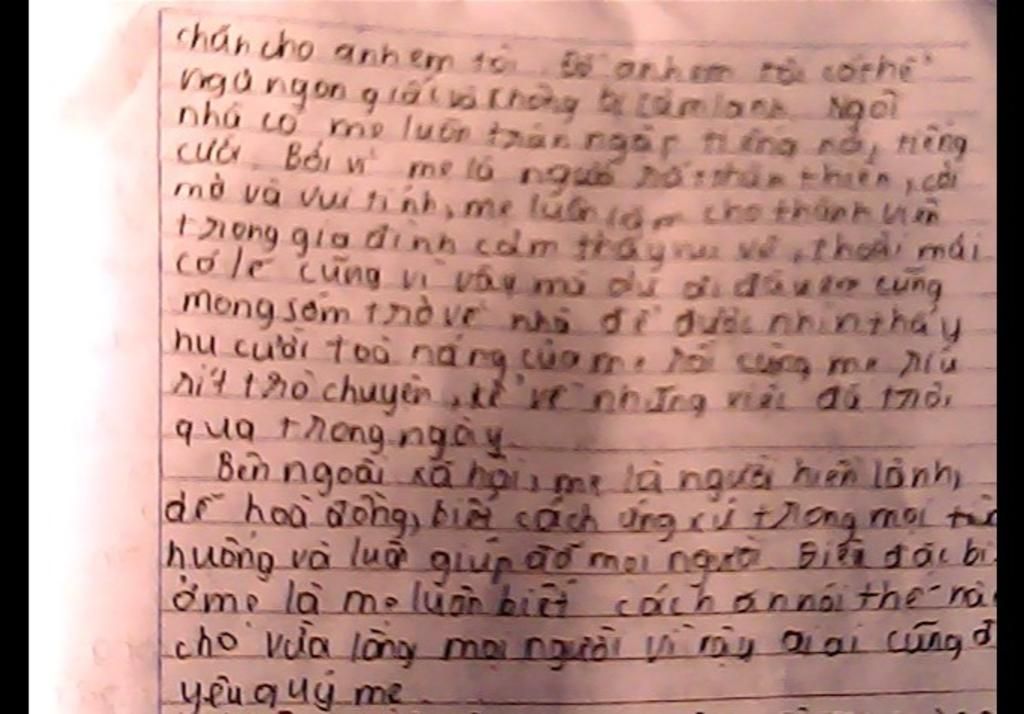 chăn cho anh em tôi. Để anh em tôi có thể
ngủ ngon giấc và không bị cảm lạnh. Ngôi
nhà có mẹ luôn tràn ngập tiếng nói, tiếng
cười. Bởi vì mẹ là người rất thân thiện, cởi
mở và vui tính, mẹ luôn làm cho thành viên
trong gia đình cảm thấy vui vẻ, thoải mái
có lẽ cũng vì vậy mà dù đi đâu cũng
mong sớm trở về nhà để được nhìn thấy
nụ cười toả nắng của mẹ rồi cùng mẹ ríu
rít trò chuyện, kể về những việc đã trải
qua trong ngày.
Bên ngoài xã hội, mẹ là người hiền lành,
dễ hoà đồng, biết cách ứng xử trong mọi
huống và luôn giúp đỡ mọi người. Điều đặc bi
ở mẹ là mẹ luôn biết cách ăn nói thế nà
cho vừa lòng mọi người vì vậy ai ai cũng đ
yêu quý mẹ.